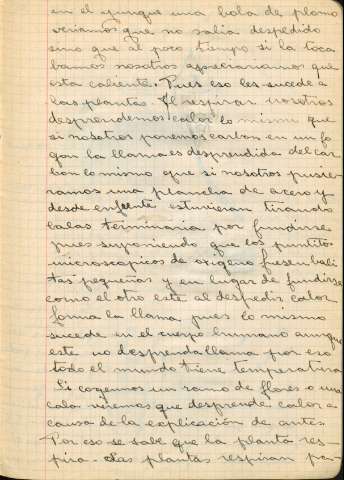 en el yunque una bola de plomo
veriamos que no salia despedido
sino que al poco tiempo si la toca
bamos nosotros apreciariamos que
esta caliente. Pues eso les sucede a
las plantas. Al respirar nosotros
desprendemos calor lo mismo que
si nosotros ponemos carbon en un fo
gon la llama es desprendida del car
bon lo mismo que si nosotros pusie
ramos una plancha de acero y
desde enfrente estuvieran tirando
balas terminaria por fundirse
pues suponiendo que los puntitos
microscopicos de origeno fuesen bali
tas pequeños y en lugar de fundirse
como el otro este al despedir calor
forma la llama pues lo mismo
sucede en el cuerpo humano aunque
este no desprenda llama por eso
todo el mundo tiene temperatura
Si cogemos un ramo de flores o una
cala veremos que desprende calor a
causa de la explicación de antes.
Por eso se sabe que la planta res
pira. Las plantas respiran por